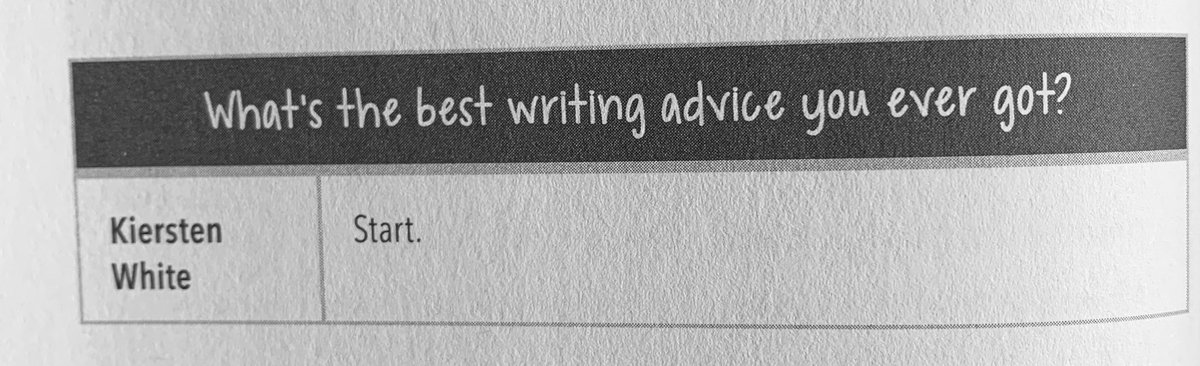 What's the best writing advice you ever got?
Kiersten
White
Start.